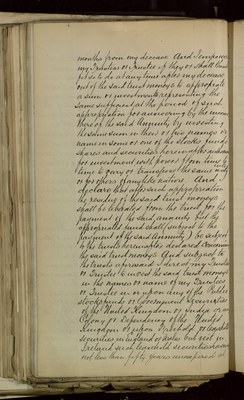 months from my decease And I empower
my Trustees or Trustee if they or he shall think
fit so to do at any time after my decease
out of the said trust moneys to appropriate
a sum or investment representing the
same sufficient at the period of said
appropriation for answering by the income
thereof the said annuity by investing
the same sum in their or his names or
name in some or one of the stocks funds
shares and securities hereinafter authorized
for investment with power from time to
time to vary or transpose the same
for others of any like nature And I
declare that after said appropriation
the residue of the said trust moneys
shall be discharged from the trust for the
payment of the said annuity but the
appropriated fund shall subject to the
payment of the said annuity be subject
to the trusts hereinafter declared concerning
the said trust moneys And subject to
the trusts aforesaid I direct my Trustees
or Trustee to invest the said trust moneys
in the names or name of my Trustees
or Trustee in or upon any of the Public
stocks funds or Government securities
of the United Kingdom or India or any
Colony or Dependency of the United
Kingdom or upon freehold or leasehold
securities in England or Wales but not in
Ireland such leasehold securities having
not less than fifty years unexpired at